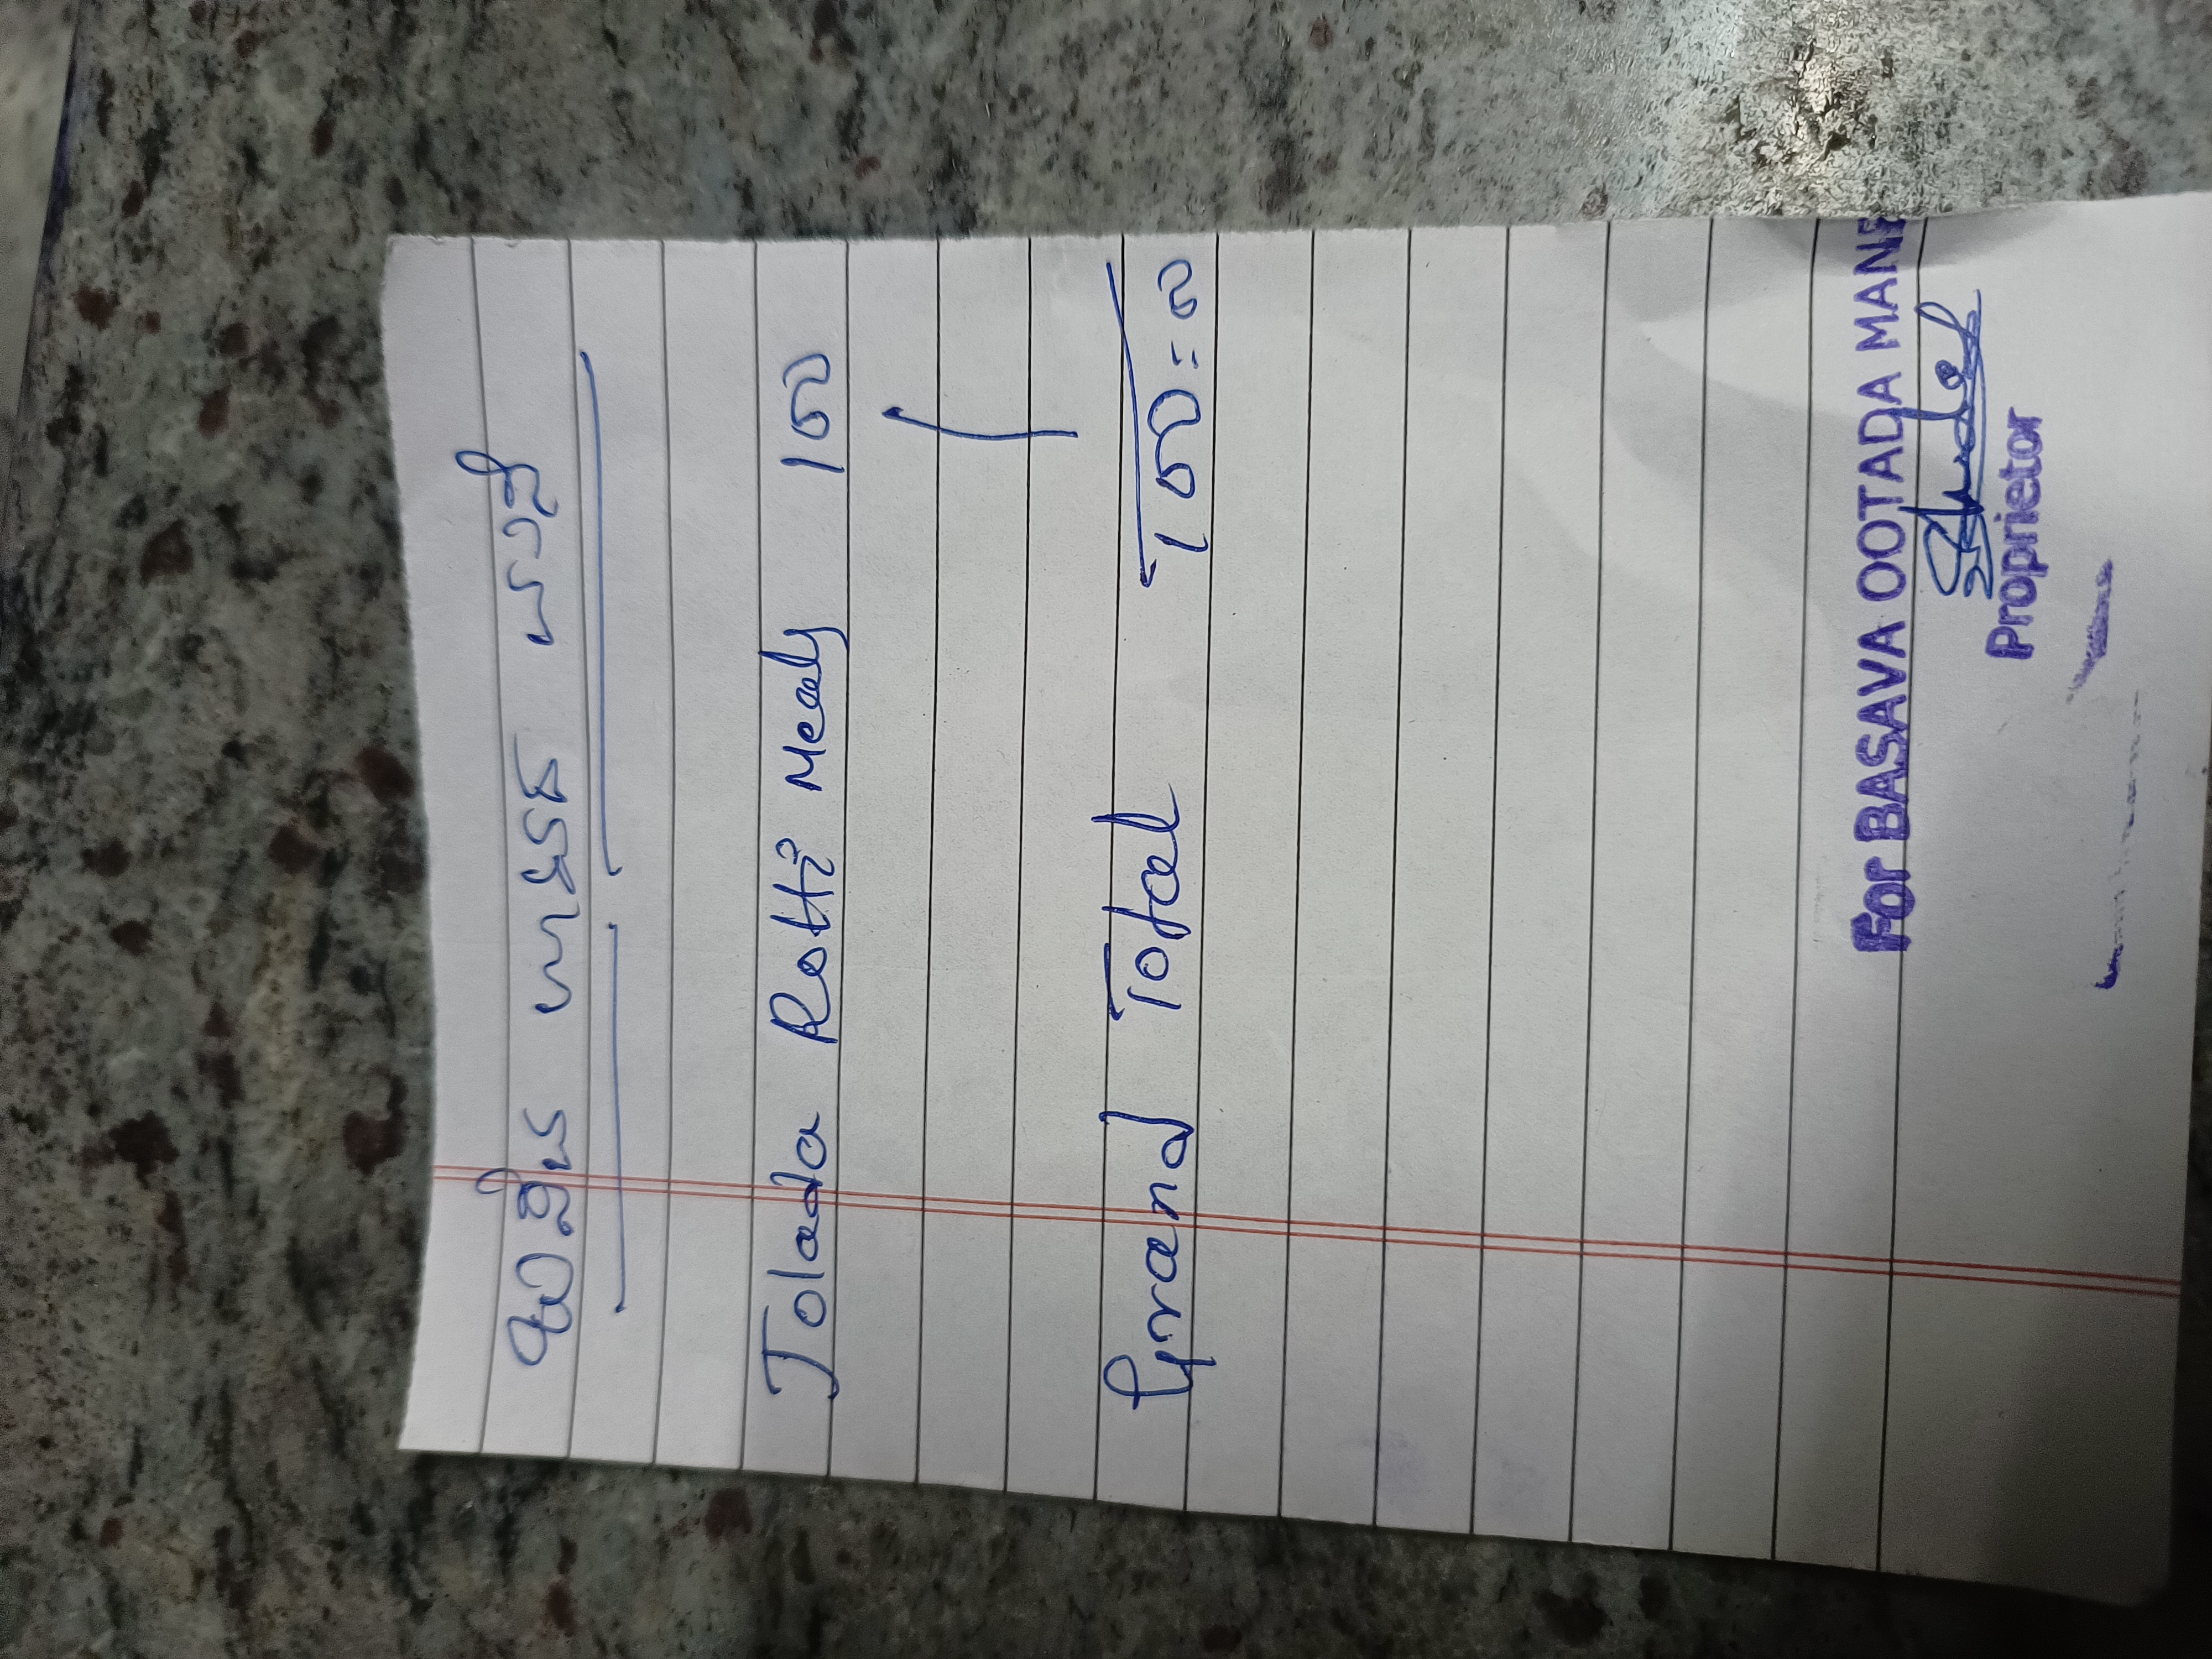 ಬಸವ ಊಟದ ಮನೆ
Jolada Rotti Meals 100
Grand Total 100=00
For BASAVA OOTADA MANE
Proprietor